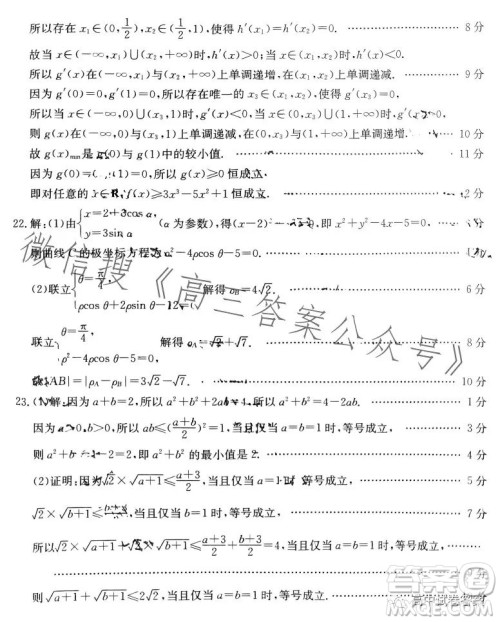 所以存在 x₁∈(0,1/2), x₂∈(1/2,1),使得 h′(x₁)=h′(x₂)=0. 8分
故当 x∈(-∞,x₁)∪(x₂,+∞)时,h′(x)>0;当 x∈(x₁,x₂)时,h′(x)<0.
所以 g′(x)在(-∞,x₁)与(x₂,+∞)上单调递增,在(x₁,x₂)上单调递减. 9分
因为 g′(0)=0,g′(1)=0,所以存在唯一的 x₃∈(x₁,x₂),使得 g′(x₃)=0,
所以当 x∈(-∞,0)∪(x₃,1)时,g′(x)<0,当 x∈(0,x₃)∪
则 g(x)在(-∞,0)与(x₃,1)上单调递减,在(0,x₃)与(1,+∞)上单调递增, 10分
故 g(x)min是 g(0)与 g(1)中的较小值. 11分
因为 g(0)= 所以 g(x)≥0恒成立.
即对任意的 x∈R,f(x)≥3x³-5x²+1 恒成立. 2分
22.解:(1)由{x=2+3cos α, y=3sin α (α为参数),得(x-2)²,即 x²+y²-4x-5=0.
则曲线C的极坐标方程为ρ²-4ρcos θ-5=0.
(2)联立{θ=π/4, ρcos θ+2ρsin θ-12=0, 解得 ρB=4√2. 6分
联立{θ=π/4, ρ²-4ρcos θ-5=0, 解得 ρA=√2+√7. 8分
故|AB|=|ρA-ρB|=3√2-√7. 10分
23.(1)解:因为 a+b=2,所以 a²+b²+2ab=4,所以 a²+b²=4-2ab. 1分
因为 a>0,b>0,所以 ab≤((a+b)/2)²=1,当且仅当 a=b=1 时,等号成立, 3分
则 a²+b²≥-2=2,即 a²+b² 的最小值是 2. 4分
(2)证明:因为√2×√(a+1)≤(a+3)/2,当且仅当 a=1 时,等号成立, 5分
√2×√(b+1)≤(b+3)/2,当且仅当 b=1 时,等号成立, 7分
所以√2×√(a+1)+√2×√(b+1)≤(a+3)/2+,当且仅当 a=b=1 时,等号成立,
则√(a+1)+√(b+1)≤2√2,当且仅当 a=b=1 时,等号成立.
微信搜《高三答案公众号》